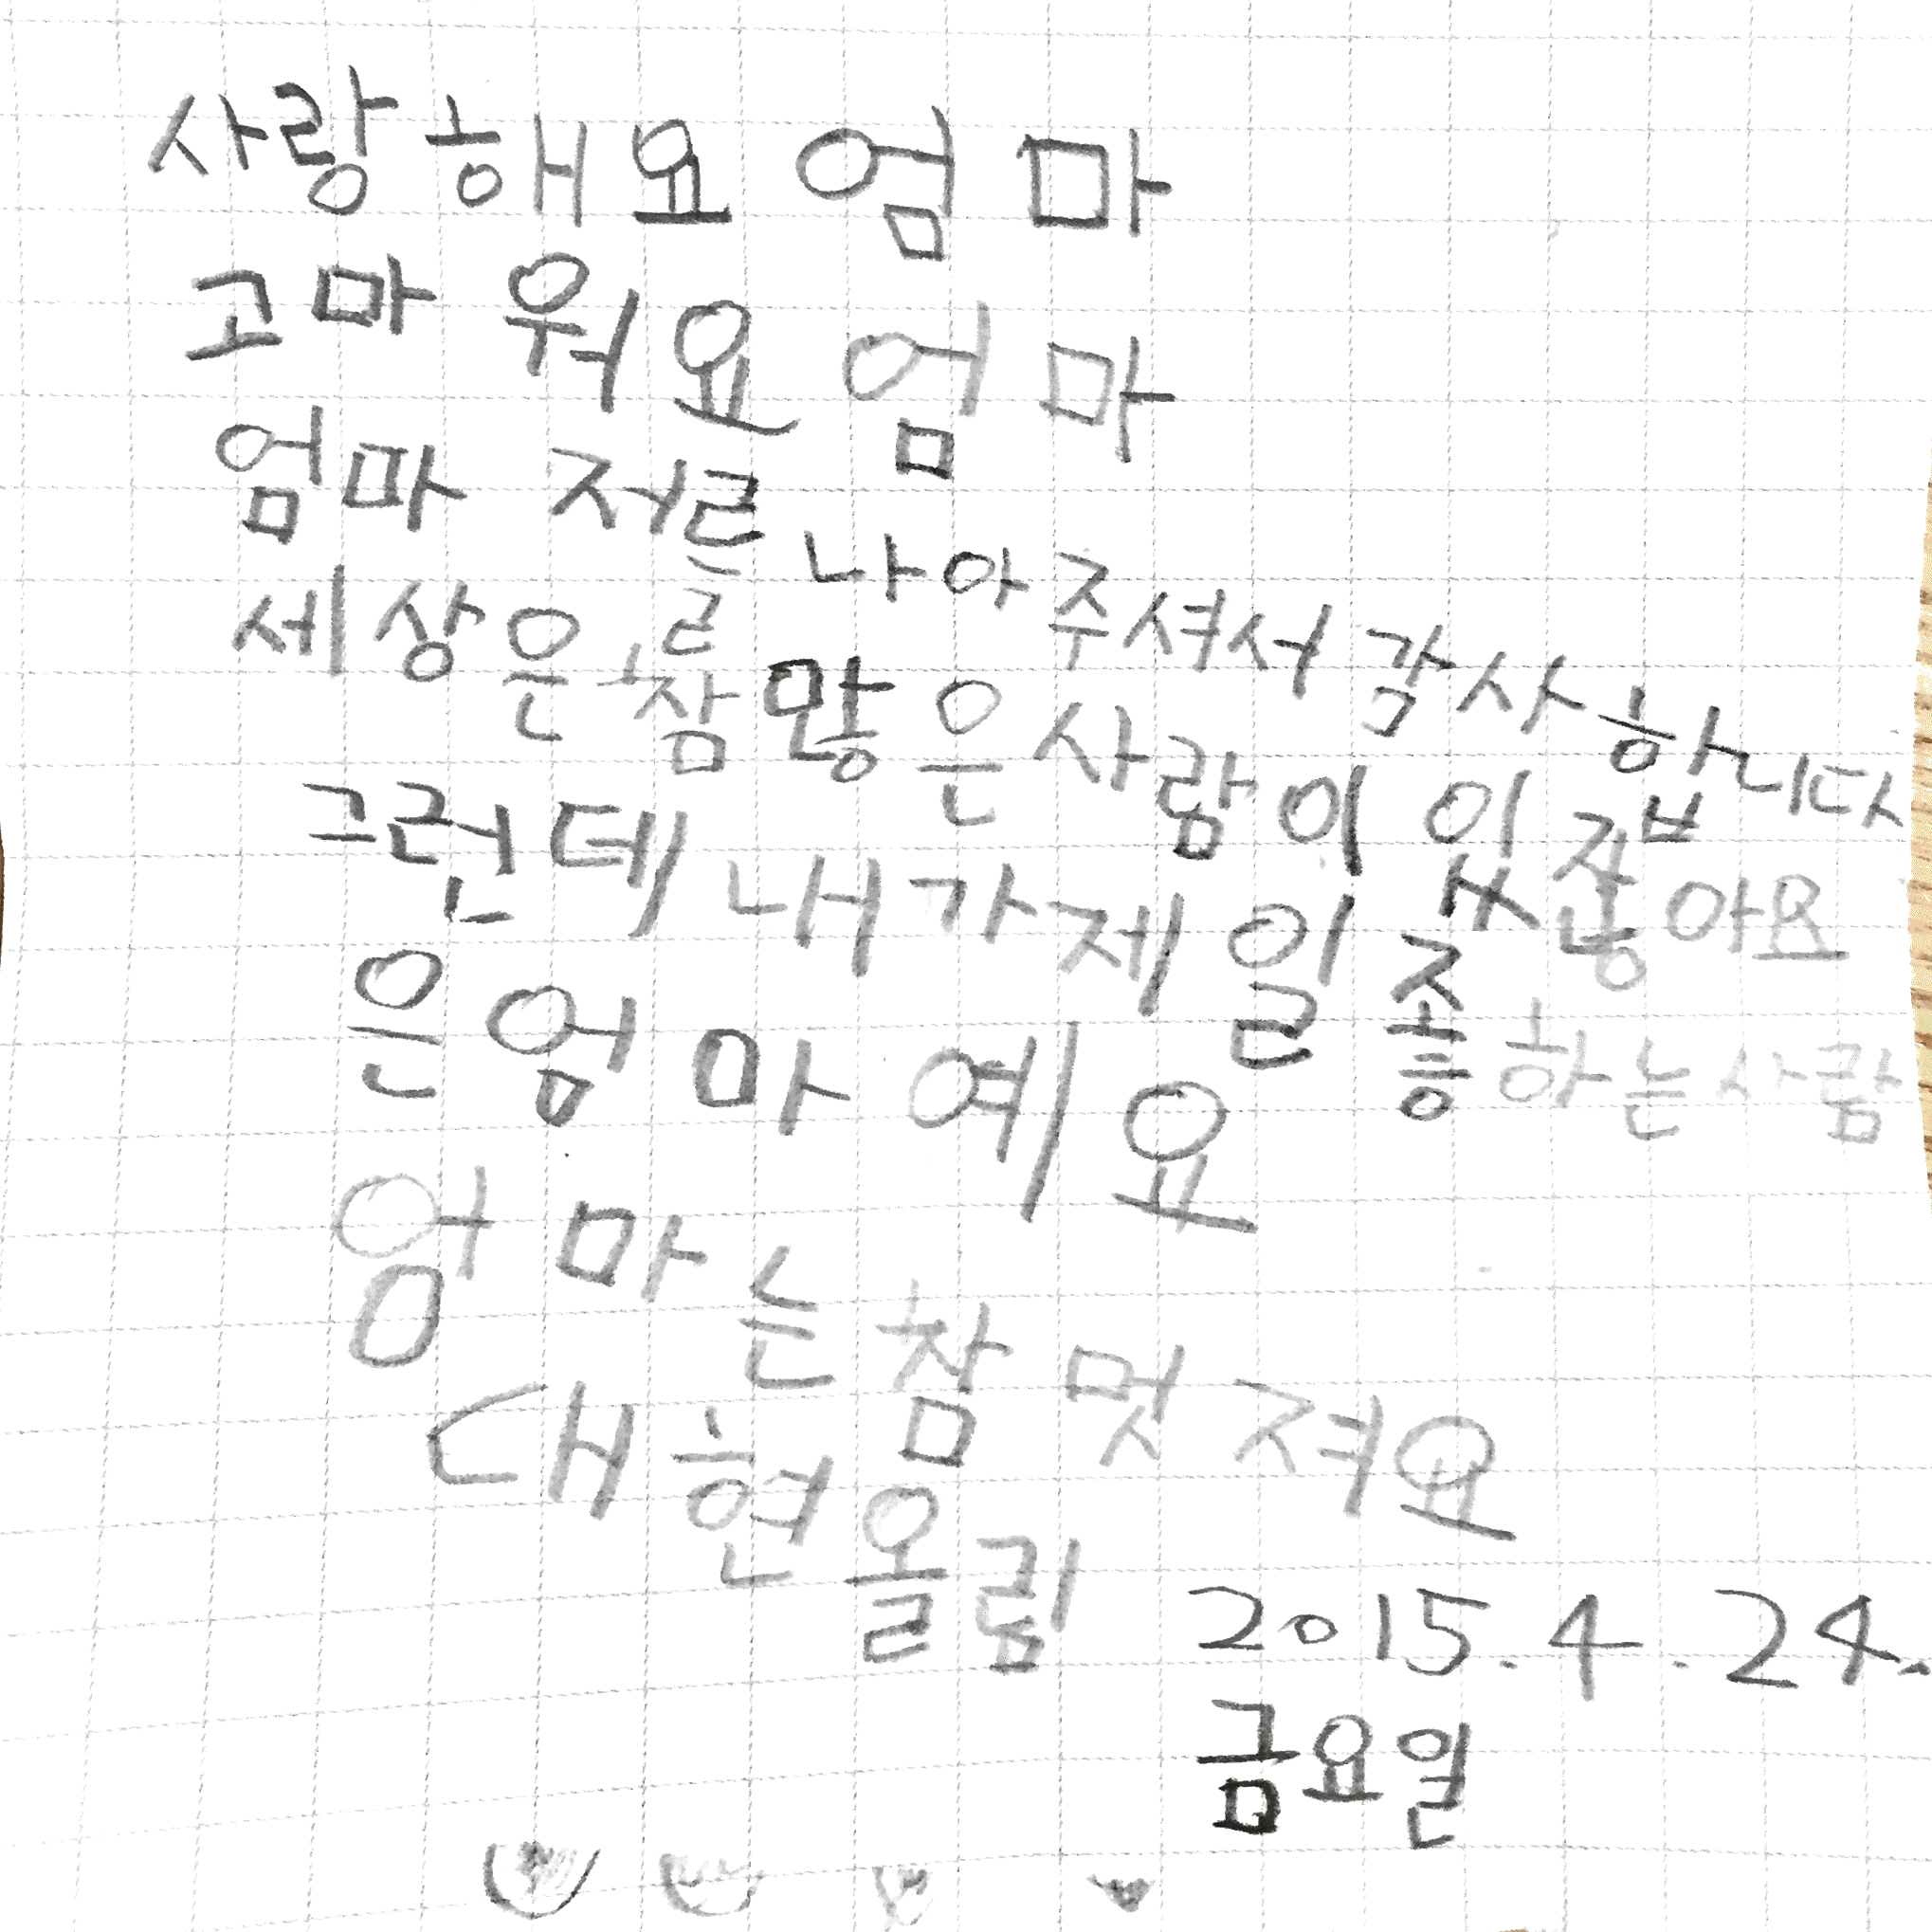 사랑해요 엄마
고마워요 엄마
엄마 저를 나아주셔서 감사합니다
세상은 참 많은 사람이 있잖아요
그런데 내가 제일 종하는사람
은 엄마예요
엄마는 참 멋져요
대현올림
2015.4.24.
금요일